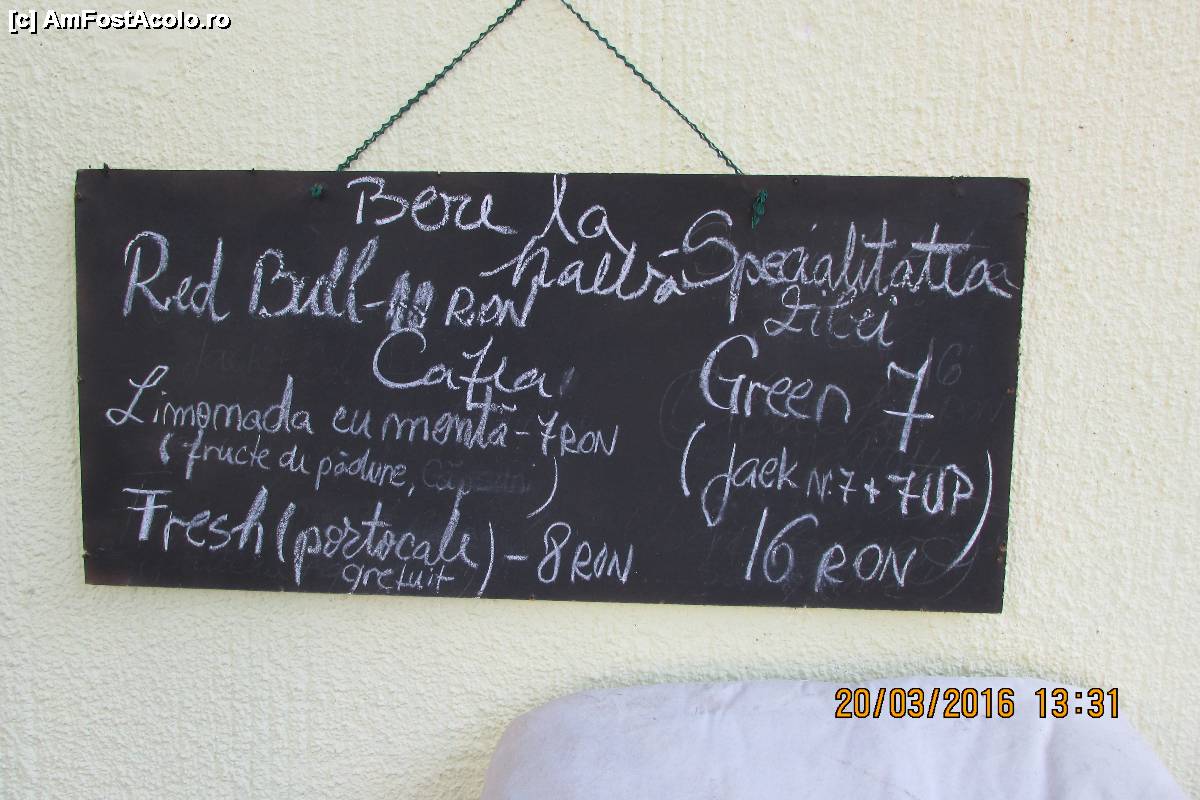 [c] AmFostAcolo.ro
Bere la
halbă
Red Bull - RON
Cafea
Limonada cu mentă - 7 RON
(fructe de pădure, Căpșuni)
Fresh (portocale) - 8 RON
gretuit
Specialitatea
zilei
Green 7
(Jack N.7 + 7UP)
16 RON
20/03/2016 13:31